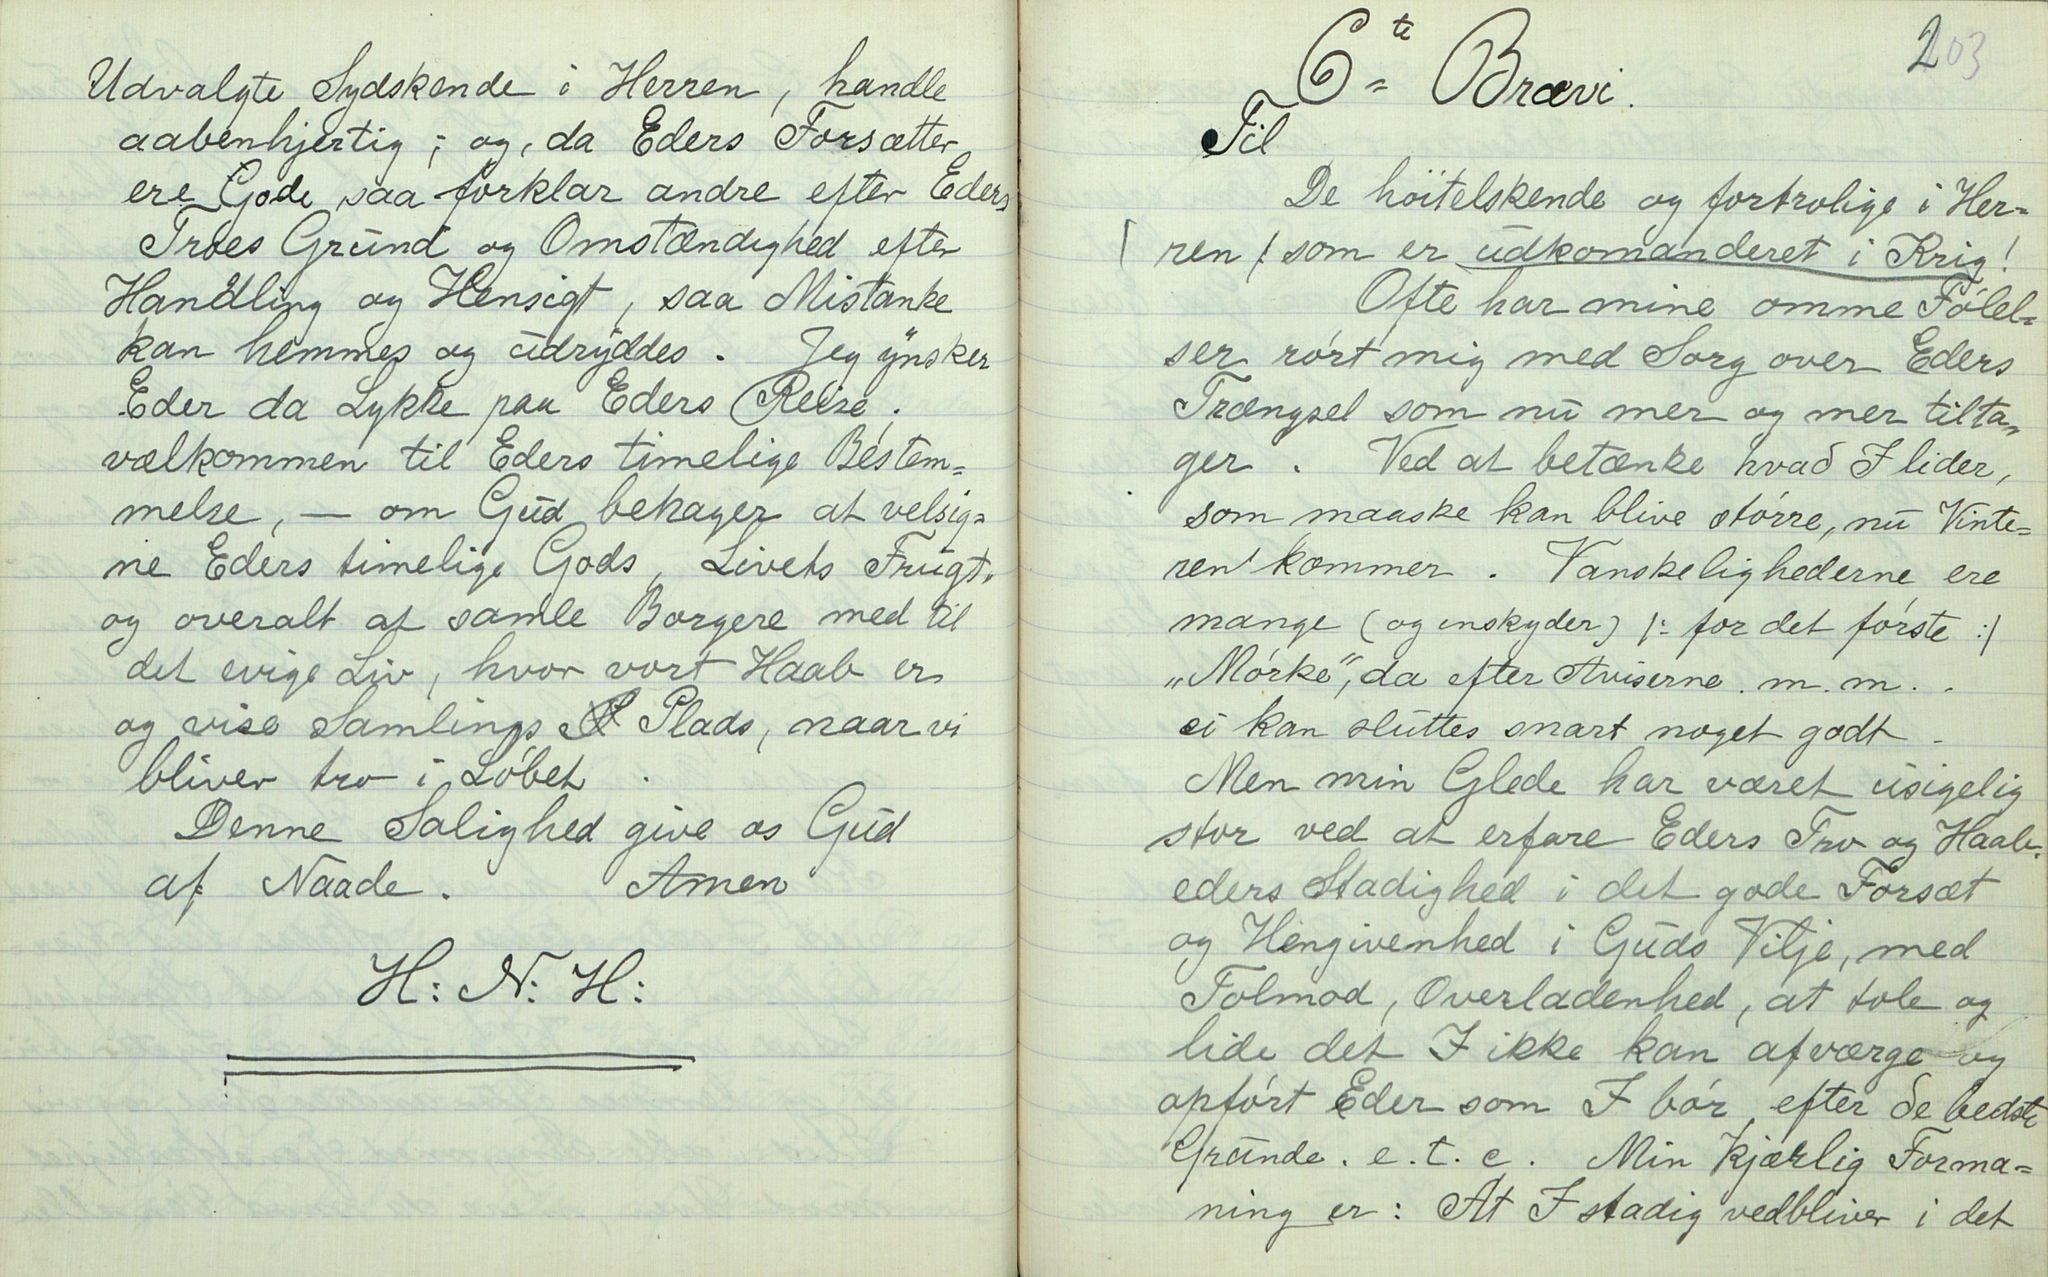 Udvalgte Sydskende i Herren, handle
aabenhjertig; og, da Eders Forsætter
ere Gode, saa forklar andre efter Eders
Troes Grund og Omstændighed efter
Handling og Hensigt, saa Mistanke
kan hemmes og udryddes. Jeg ynsker
Eder da Lykke paa Eders Reise,
vælkommen til Eders timelige Bestem=
melse, — om Gud behager at velsig=
ne Eders timelige Gods, Livets Frugt,
og overalt at samle Borgere med til
det evige Liv, hvor vort Haab er
og vise Samlings Plads, naar vi
bliver tro i Løbet.
Denne Salighed give os Gud
af Naade. Amen
H: N: H:
203
6te = Brævi.
Til
De höitelskende og fortrolige i Her=
ren /: som er udkomanderet i Krig!
Ofte har mine omme Følel=
ser rórt mig med Sorg over Eders
Trængsel som nu mer og mer tilta=
ger. Ved at betænke hvad I lider,
som maaske kan blive stórre, nu Vinte=
ren kommer. Vanskelighederne ere
mange (og enskyder) /: for det fórste :/
„Mórke", da efter Aviserne m.m..
ei kan sluttes snart noget godt.
Men min Glede har været usigelig
stor ved at erfare Eders Tro og Haab,
eders Stadighed i det gode Forsæt
og Hengivenhed i Guds Vilje, med
Tolmod, Overladenhed, at tole og
lide det I ikke kan afværge og
opfórt Eder som I bór efter de bedste
Grunde. e.t.c. Min Kjærlig Forma=
ning er: At I stadig vedbliver i det